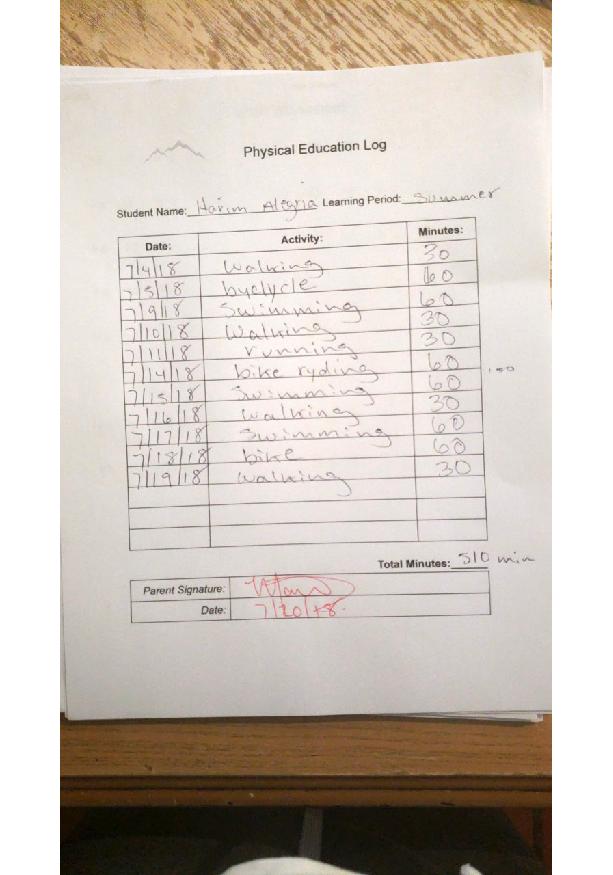 Physical Education Log
Student Name: Harim Alegria Learning Period: Summer
Date: Activity: Minutes:
7/4/18 walking 30
7/5/18 byclycle 60
7/9/18 Swimming 60
7/10/18 Walking 30
7/11/18 running 30
7/14/18 bike ryding 60
7/15/18 Swimming 60
7/16/18 walking 30
7/17/18 Swimming 60
7/18/18 bike 60
7/19/18 walking 30
Total Minutes: 510 min
Parent Signature:
Date: 7/20/18.